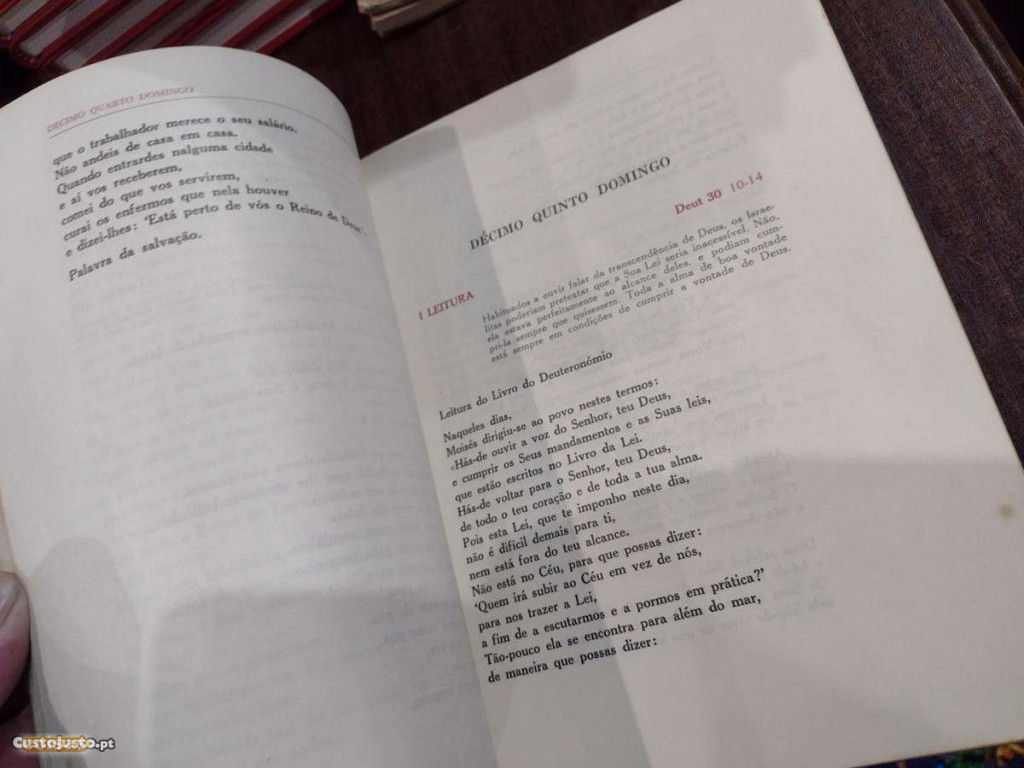 DÉCIMO QUARTO DOMINGO
que o trabalhador merece o seu salário.
Não andeis de casa em casa.
Quando entrardes nalguma cidade
e aí vos receberem,
comei do que vos servirem,
curai os enfermos que nela houver
e dizei-lhes: ‘Está perto de vós o Reino de Deus’.
Palavra da salvação.
DÉCIMO QUINTO DOMINGO
Deut 30 10-14
I LEITURA
Habituados a ouvir falar da transcendência de Deus, os Israe-
litas poderiam protestar que a Sua Lei seria inacessível. Não,
ela estava perfeitamente ao alcance deles, e podiam cum-
pri-la sempre que quisessem. Toda a alma de boa vontade
está sempre em condições de cumprir a vontade de Deus.
Leitura do Livro do Deuteronómio
Naqueles dias,
Moisés dirigiu-se ao povo nestes termos:
«Hás-de ouvir a voz do Senhor, teu Deus,
e cumprir os Seus mandamentos e as Suas leis,
que estão escritos no Livro da Lei.
Hás-de voltar para o Senhor, teu Deus,
de todo o teu coração e de toda a tua alma.
Pois esta Lei, que te imponho neste dia,
não é difícil demais para ti,
nem está fora do teu alcance.
Não está no Céu, para que possas dizer:
‘Quem irá subir ao Céu em vez de nós,
para nos trazer a Lei,
a fim de a escutarmos e a pormos em prática?’
Tão-pouco ela se encontra para além do mar,
de maneira que possas dizer:
Custojusto.pt